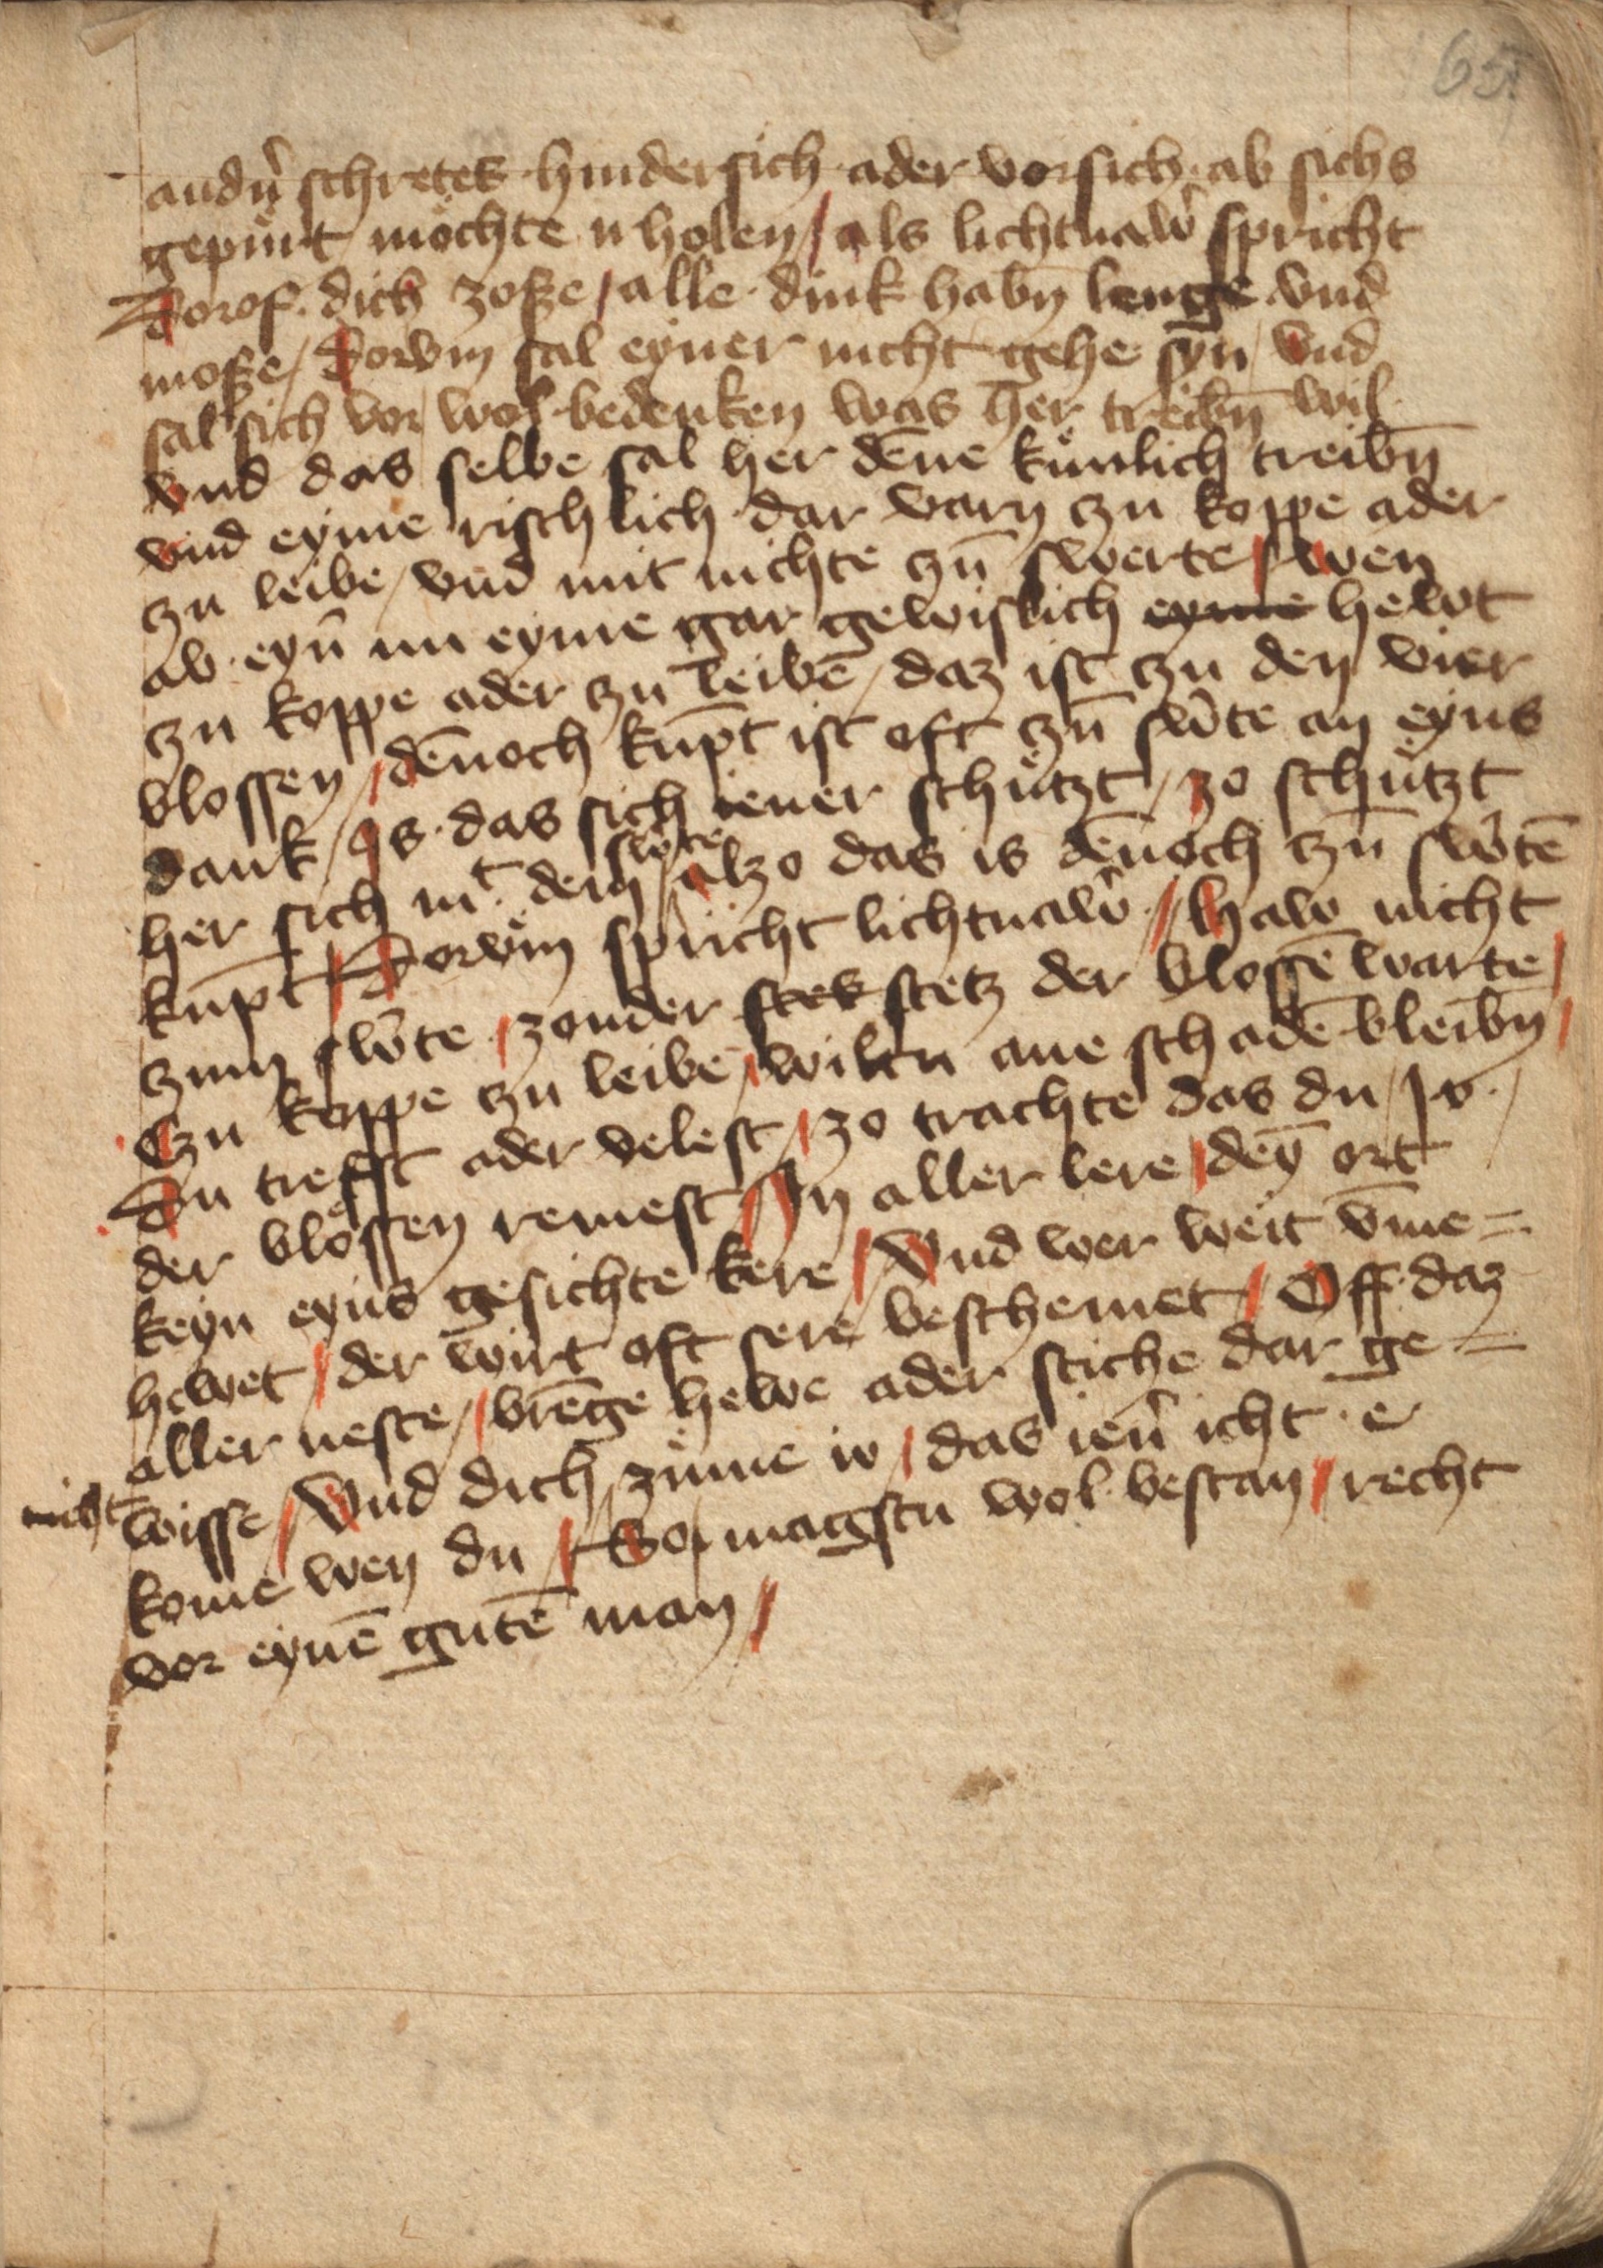 65
andñ schretek hindersich ader vorsich ab sichs
gepürt möchte irholen / als lichtnaw̄ spricht
Dorof dich zoße / alle dink habñ lenge vnd
moße / Dorvm sal eyner nicht gehe syn / vnd
sal sich vor wol bedenken was her treibñ wil
vnd das selbe sal her dēne künlich treibñ
vnd eyme risch lich dar varn czu koppe ader
czu leibe / vnd mit nichte czū swerte / wen
ab eyñ im eyme gar gewislich eyme hewt
czu koppe ader czu leibē / daz ist czu den vier
blossen / dēnoch kūpt ist oft czū sw̄te an eyns
dank / Is das sich iener schützt / zo schützt
her sich mt dem sw̄te / alzo das is dēnoch czū sw̄tē
kūpt / Dorvm spricht lichtnaw̄ / haw nicht
czum sw̄te / zonder stek stetz der blossē warte /
Czu koppe zu leibe / wiltu ane schadē bleibñ /
Du trefst ader velest / zo trachte das du io
der blössen remest / In aller lere / deȳ ort
keyn eyns gesichte kere / Vnd wer weit v̄me=
hewet / der wirt oft sere beschemet / Off daz
aller neste / brēge hewe ader stiche dar ge=
nicht wisse / Vnd dich zümē io / das ieñ icht e
kome wen du / So magstu wol bestan / recht
vor eynē gutē man /